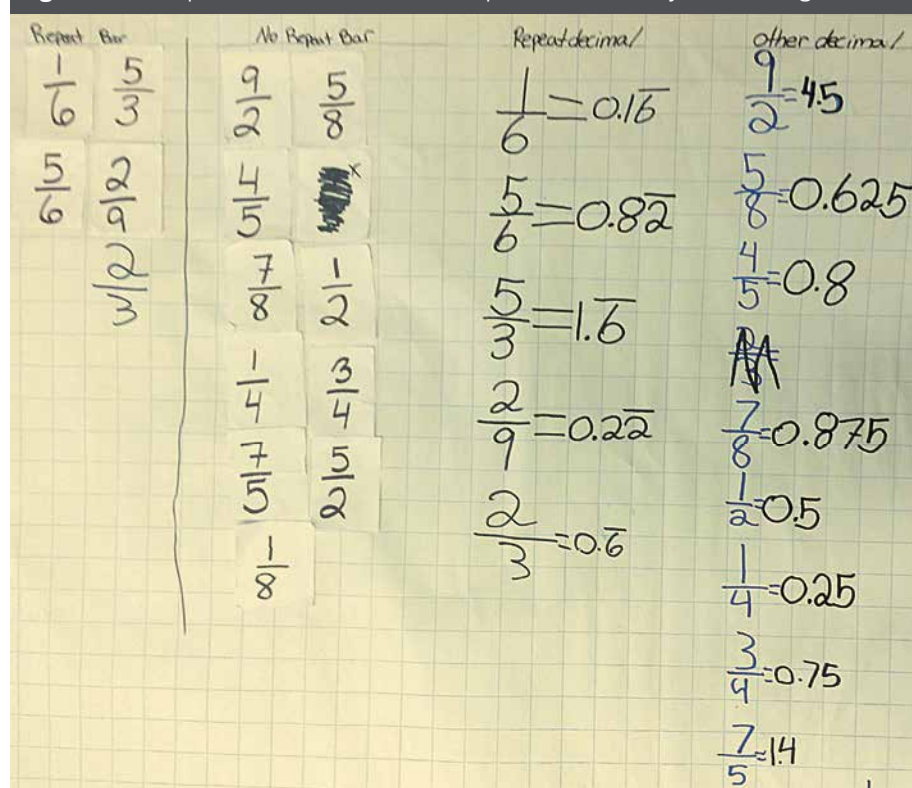 Repeat Bar
1/6 5/3
5/6 2/9
2/3
No Repeat Bar
9/2 5/8
4/5
7/8 1/2
1/4 3/4
7/5 5/2
1/8
Repeat decimal
1/6 = 0.16̅
5/6 = 0.82̅
5/3 = 1.6̅
2/9 = 0.22̅
2/3 = 0.6̅
other decimal
9/2 = 4.5
5/8 = 0.625
4/5 = 0.8
7/8 = 0.875
1/2 = 0.5
1/4 = 0.25
3/4 = 0.75
7/5 = 1.4